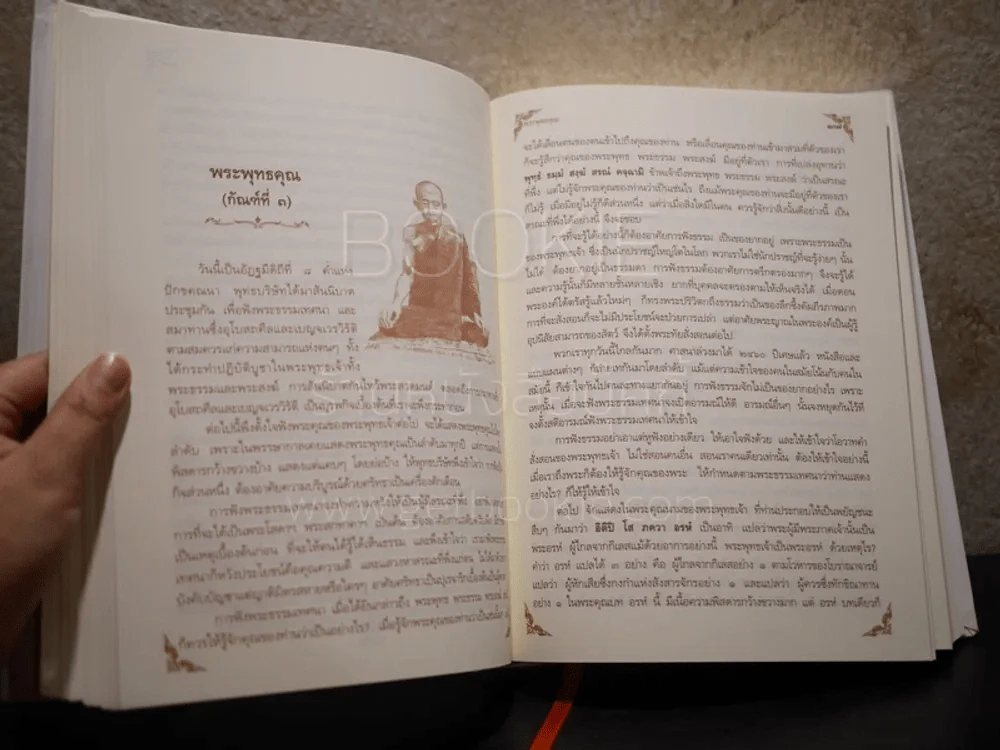 พระพุทธคุณ
(กัณฑ์ที่ ๓)
วันนี้เป็นอัฏฐมีดิถีที่ ๘ ค่ำแห่ง
ปักขคณนา พุทธบริษัทได้มาสันนิบาต
ประชุมกัน เพื่อฟังพระธรรมเทศนา และ
สมาทานซึ่งอุโบสถศีลและเบญจเวรวิรัติ
ตามสมควรแก่ความสามารถแห่งตนๆ ทั้ง
ได้กระทำปฏิบัติบูชาในพระพุทธเจ้าทั้ง
พระธรรมและพระสงฆ์ การสันนิบาตกันไหว้พระสวดมนต์
อุโบสถศีลและเบญจเวรวิรัติ เป็นบุรพกิจเบื้องต้นที่เราจะฟังธรรมก่อน
ต่อไปนี้พึงตั้งใจฟังพระคุณของพระพุทธเจ้าต่อไป จะได้แสดงพระพุทธคุณ
ลำดับ เพราะในพรรษากาลเคยแสดงพระพุทธคุณเป็นลำดับมาทุกปี
พิสดารกว้างขวางบ้าง แสดงแต่แคบๆ โดยย่อบ้าง ให้พุทธบริษัทฟังเข้าใจ
กิจส่วนหนึ่ง ต้องอาศัยความบริบูรณ์ด้วยศรัทธาเป็นเครื่องตักเตือน
การฟังพระธรรมเทศนา
บังคับบัญชาแต่ญาติมิตรสหายหรือใครๆ
การฟังพระธรรมเทศนา เมื่อได้ยินกล่าวถึง พระพุทธ พระธรรม
ก็ควรให้รู้จักคุณของท่านว่าเป็นอย่างไร? เมื่อรู้จักพระคุณของท่านว่าเป็นเช่นนั้น
พระพุทธคุณ
จะได้เตือนตนของตนเข้าไปถึงคุณของท่าน หรือเลื่อนคุณของท่านเข้ามาสวมที่ตัวของเรา
ก็จะรู้สึกว่าคุณของพระพุทธ พระธรรม พระสงฆ์ มีอยู่ที่ตัวเรา การที่เปล่งอุทานว่า
พุทฺธํ ธมฺมํ สงฺฆํ สรณํ คจฺฉามิ ข้าพเจ้าถึงพระพุทธ พระธรรม พระสงฆ์ ว่าเป็นสรณะ
ที่พึ่ง แต่ไม่รู้จักพระคุณของท่านว่าเป็นเช่นไร ถึงแม้พระคุณของท่านจะมีอยู่ที่ตัวของเรา
ก็ไม่รู้ เมื่อมีอยู่ไม่รู้ก็ดีส่วนหนึ่ง แต่ว่าเมื่อสิ่งใดมีในตน ควรรู้จักว่าสิ่งนั้นดีอย่างนี้ เป็น
สรณะที่พึ่งได้อย่างนี้ จึงจะชอบ
การที่จะรู้ได้อย่างนี้ก็ต้องอาศัยการฟังธรรม เป็นของยากอยู่ เพราะพระธรรมเป็น
ของพระพุทธเจ้า ซึ่งเป็นนักปราชญ์ใหญ่โตในโลก พวกเราไม่ใช่นักปราชญ์ที่จะรู้ง่ายๆ นั้น
ไม่ได้ ต้องยากอยู่เป็นธรรมดา การฟังธรรมต้องอาศัยการตรึกตรองมากๆ จึงจะรู้ได้
และความรู้นั้นก็มีหลายชั้นหลายเชิง ยากที่บุคคลจะตรองตามให้เห็นจริงได้ เมื่อตอน
พระองค์ได้ตรัสรู้แล้วใหม่ๆ ก็ทรงพระปริวิตกถึงธรรมว่าเป็นของลึกซึ้งคัมภีรภาพมาก
การที่จะสั่งสอนก็จะไม่มีประโยชน์จะป่วยการเปล่า แต่อาศัยพระญาณในพระองค์เป็นผู้รู้
อุปนิสัยสามารถของสัตว์ จึงได้ตั้งพระทัยสั่งสอนต่อไป
พวกเราทุกวันนี้ไกลกันมาก ศาสนาล่วงมาได้ ๒๔๖๐ ปีเศษแล้ว หนังสือและ
แบบแผนต่างๆ ก็ถ่ายเทกันมาโดยลำดับ แม้แต่ความเข้าใจของคนในสมัยโน้นกับคนใน
สมัยนี้ ก็เข้าใจกันไปคนละทางแยกกันอยู่ การฟังธรรมจักไม่เป็นของยากอย่างไร เพราะ
เหตุนั้น เมื่อจะฟังพระธรรมเทศนาจงเปิดอารมณ์ให้ดี อารมณ์อื่นๆ นั้นจงหยุดกันไว้ที
จงตั้งสติอารมณ์ฟังพระธรรมเทศนาให้เข้าใจ
การฟังธรรมอย่าเอาแต่หูฟังอย่างเดียว ให้เอาใจฟังด้วย และให้เข้าใจว่าโอวาทคำ
สั่งสอนของพระพุทธเจ้า ไม่ใช่สอนคนอื่น สอนเราคนเดียวเท่านั้น ต้องให้เข้าใจอย่างนี้
เมื่อเราถึงพระก็ต้องให้รู้จักคุณของพระ ให้กำหนดตามพระธรรมเทศนาว่าท่านแสดง
อย่างไร? ก็ให้รู้ให้เข้าใจ
ต่อไป จักแสดงในพระคุณนามของพระพุทธเจ้า ที่ท่านประกอบให้เป็นพยัญชนะ
สืบๆ กันมาว่า อิติปิ โส ภควา อรหํ เป็นอาทิ แปลว่าพระผู้มีพระภาคเจ้านั้นเป็น
พระอรหํ ผู้ไกลจากกิเลสแม้ด้วยอาการอย่างนี้ พระพุทธเจ้าเป็นพระอรหํ ด้วยเหตุไร?
คำว่า อรหํ แปลได้ ๓ อย่าง คือ ผู้ไกลจากกิเลสอย่าง ๑ ตามโวหารของโบราณาจารย์
แปลว่า ผู้หักเสียซึ่งกงกำแห่งสังสารจักรอย่าง ๑ และแปลว่า ผู้ควรซึ่งทักขิณาทาน
อย่าง ๑ ในพระคุณบท อรหํ นี้ มีเนื้อความพิสดารกว้างขวางมาก แต่ อรหํ บทเดียวก็